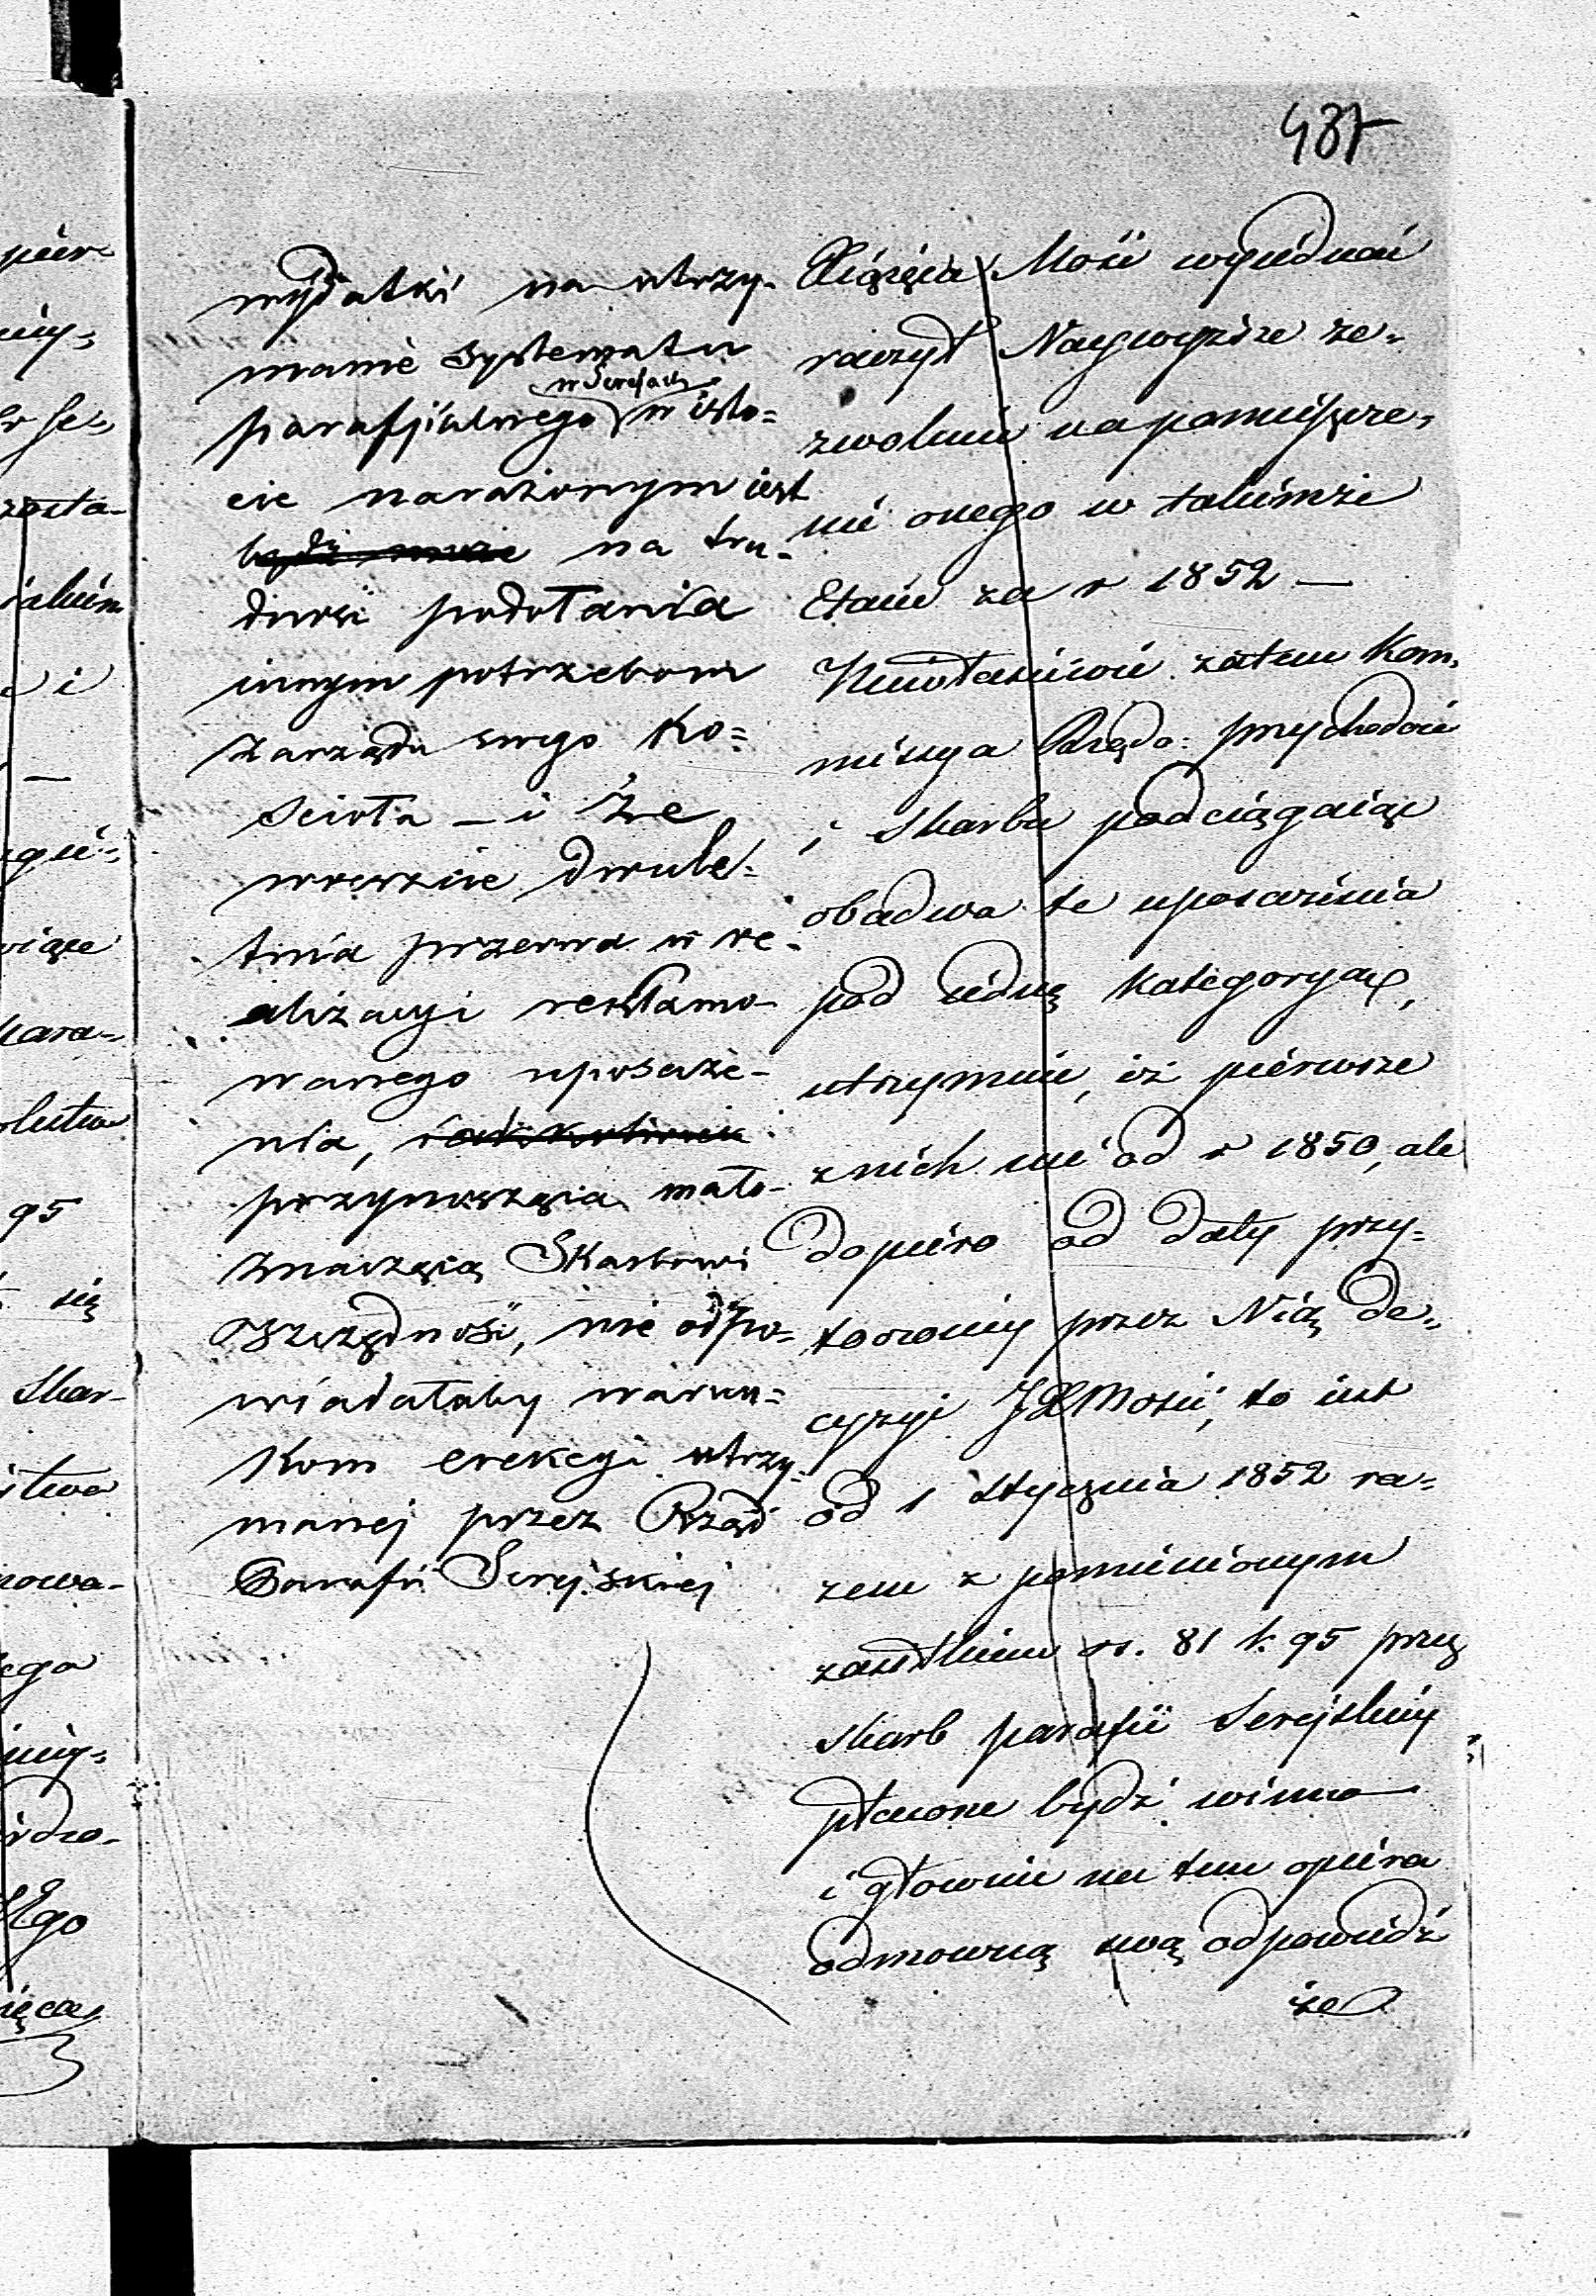 437
wydatki na utrzy-
manie systematu
w Serejach
parafijalnego w isto=
cie narażonym iest
będź może na tru-
dność podołania
innym potrzebom
zarządu swego Ko=
scioła — i że
wreszcie dwule-
tnia przerwa w re-
alizacyi reklamo-
wanego uposaże-
nia,
przynosząca mało-
znaczącą Skarbowi
oszczędność, nie odpo-
wiadałaby warun=
kom erekcyi utrzy-
manej przez Rząd
Parafii Serejskiej
Xiążęcia Mość wyiednać
raczył Naywyższe ze-
zwolenie na pomieszcze-
nie onego w takimże
Etacie za r 1852 —
Niewłaściwie zatem Kom-
missya Rządo: przychodów
i Skarbu podciągaiąc
obadwa te uposażenia
pod iedną kategoryą,
utrzymuie, iż pierwsze
z nich nie od r 1850, ale
dopiero od daty przy-
toczoney przez Nią de-
cyzyi JXMości, to iest
od 1 stycznia 1852 ra-
zem z pomienionym
zasiłkiem rs. 81 k. 95 przez
skarb parafii Serejskiey
płacone bydź winno
i głownie na tem opiera
odmowną swą odpowiedź
że